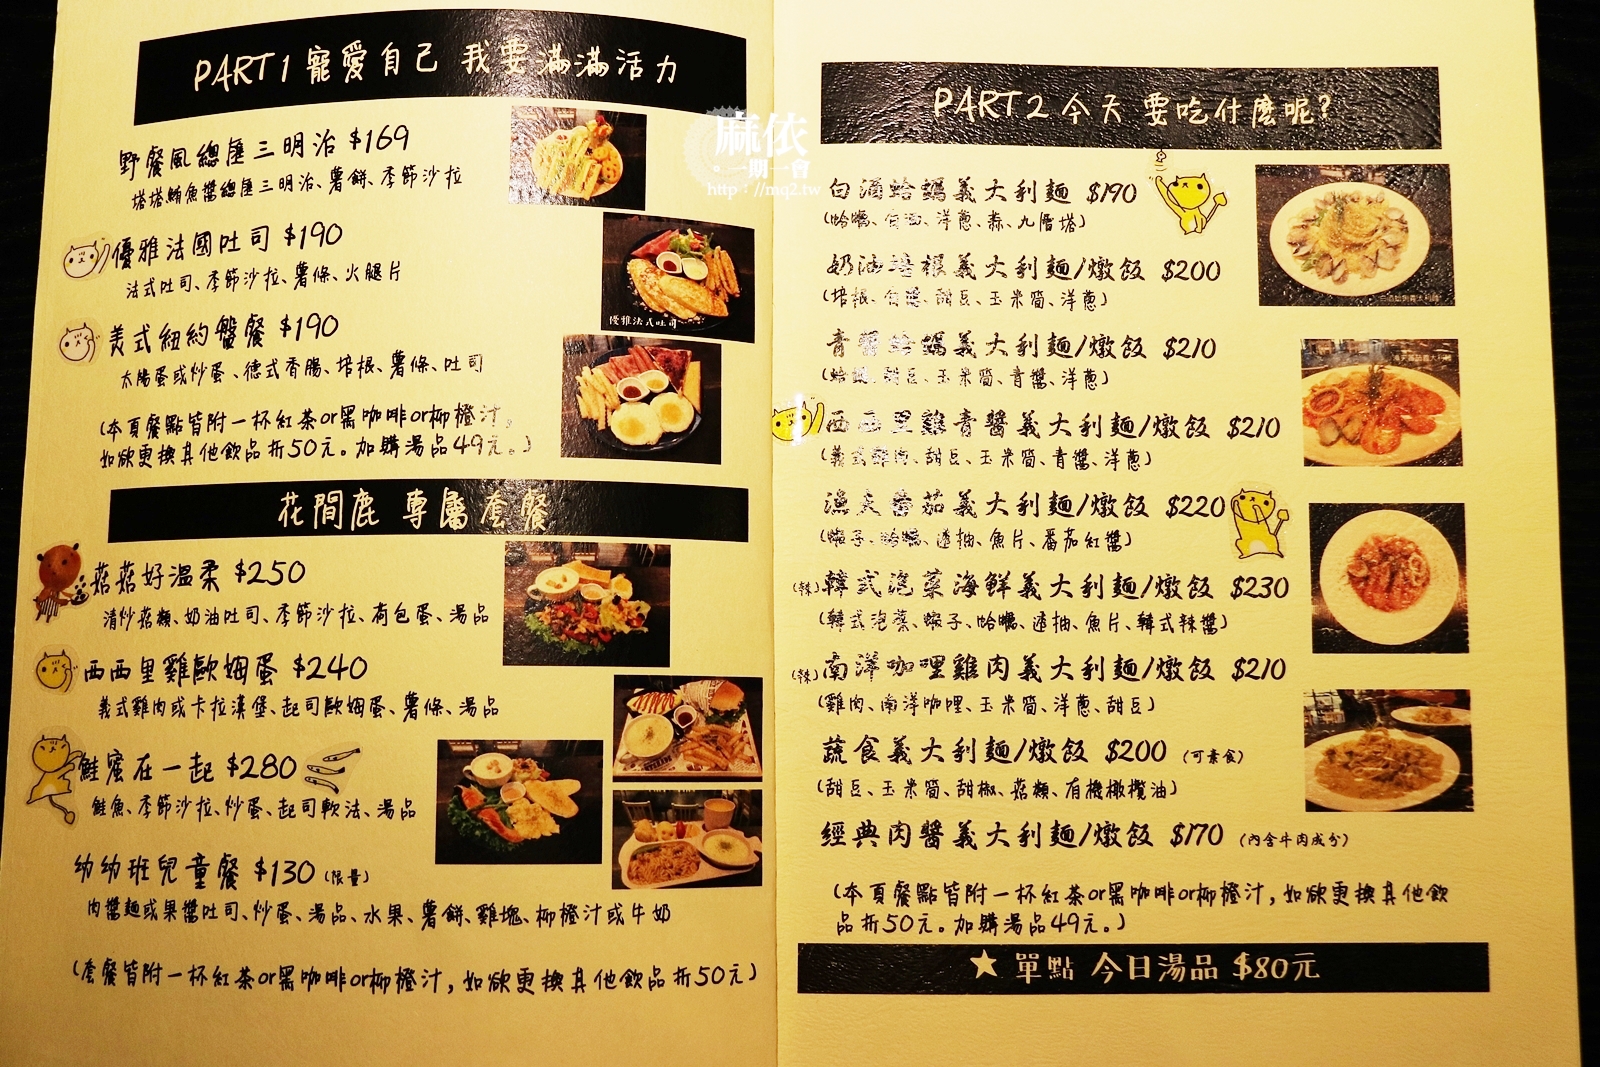 PART1 寵愛自己 我要滿滿活力
野餐風總匯三明治 $169
塔塔鮪魚醬總匯三明治、薯餅、季節沙拉
優雅法國吐司 $190
法式吐司、季節沙拉、薯條、火腿片
優雅法式吐司
美式紐約盤餐 $190
太陽蛋或炒蛋、德式香腸、培根、薯條、吐司
(本頁餐點皆附一杯紅茶or黑咖啡or柳橙汁。
如欲更換其他飲品折50元。加購湯品49元。)
花間鹿 專屬套餐
菇菇好溫柔 $250
清炒菇類、奶油吐司、季節沙拉、荷包蛋、湯品
西西里雞歐姆蛋 $240
義式雞肉或卡拉漢堡、起司歐姆蛋、薯條、湯品
鮭蜜在一起 $280
鮭魚、季節沙拉、炒蛋、起司軟法、湯品
幼幼班兒童餐 $130 (限量)
肉醬麵或果醬吐司、炒蛋、湯品、水果、薯餅、雞塊、柳橙汁或牛奶
(套餐皆附一杯紅茶or黑咖啡or柳橙汁，如欲更換其他飲品折50元)
麻依
一期一會
http://mq2.tw
PART2 今天要吃什麼呢?
白酒蛤蠣義大利麵 $190
(蛤蠣、白酒、洋蔥、蒜、九層塔)
奶油培根義大利麵/燉飯 $200
(培根、白醬、甜豆、玉米筍、洋蔥)
青醬蛤蠣義大利麵/燉飯 $210
(蛤蠣、甜豆、玉米筍、青醬、洋蔥)
西西里雞青醬義大利麵/燉飯 $210
(義式雞肉、甜豆、玉米筍、青醬、洋蔥)
漁夫番茄義大利麵/燉飯 $220
(蝦子、蛤蠣、透抽、魚片、番茄紅醬)
(辣)韓式泡菜海鮮義大利麵/燉飯 $230
(韓式泡菜、蝦子、蛤蠣、透抽、魚片、韓式辣醬)
(辣)南洋咖哩雞肉義大利麵/燉飯 $210
(雞肉、南洋咖哩、玉米筍、洋蔥、甜豆)
蔬食義大利麵/燉飯 $200 (可素食)
(甜豆、玉米筍、甜椒、菇類、有機橄欖油)
經典肉醬義大利麵/燉飯 $170 (內含牛肉成分)
(本頁餐點皆附一杯紅茶or黑咖啡or柳橙汁，如欲更換其他飲
品折50元。加購湯品49元。)
★ 單點 今日湯品 $80元